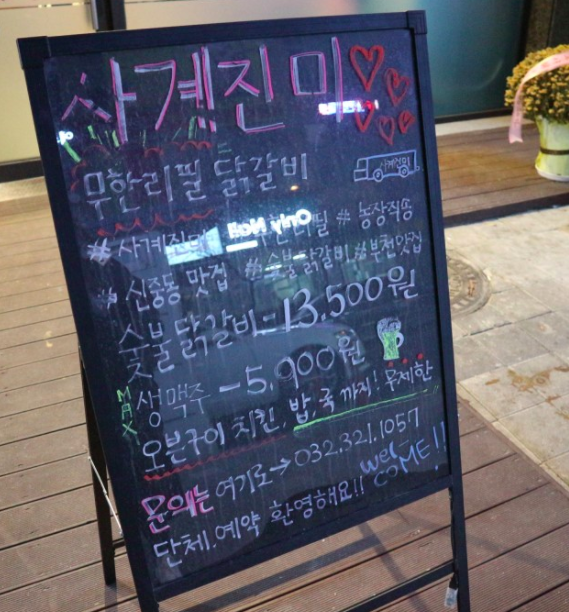 사계진미
무한리필 닭갈비
사계진미
#사계진미 #무한리필 #농장직송
#신중동 맛집 #숯불닭갈비 #부천맛집
숯불닭갈비=13,500원
MAX 생맥주 -5,900원
오븐구이 치킨, 밥, 국 까지! 무제한
문의는 여기로→ 032.321.1057
welCOME!!
단체.예약 환영해요!!
Only Nail